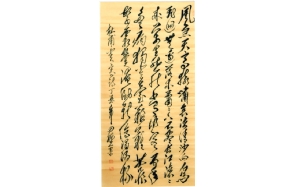 風急天高猿嘯哀渚清沙白鳥
飛迴無邊落木蕭蕭下不盡長江滾滾
來萬里悲秋常作客百年
多病獨登臺艱難苦恨
繁霜鬢潦倒新停濁酒杯
杜甫登高